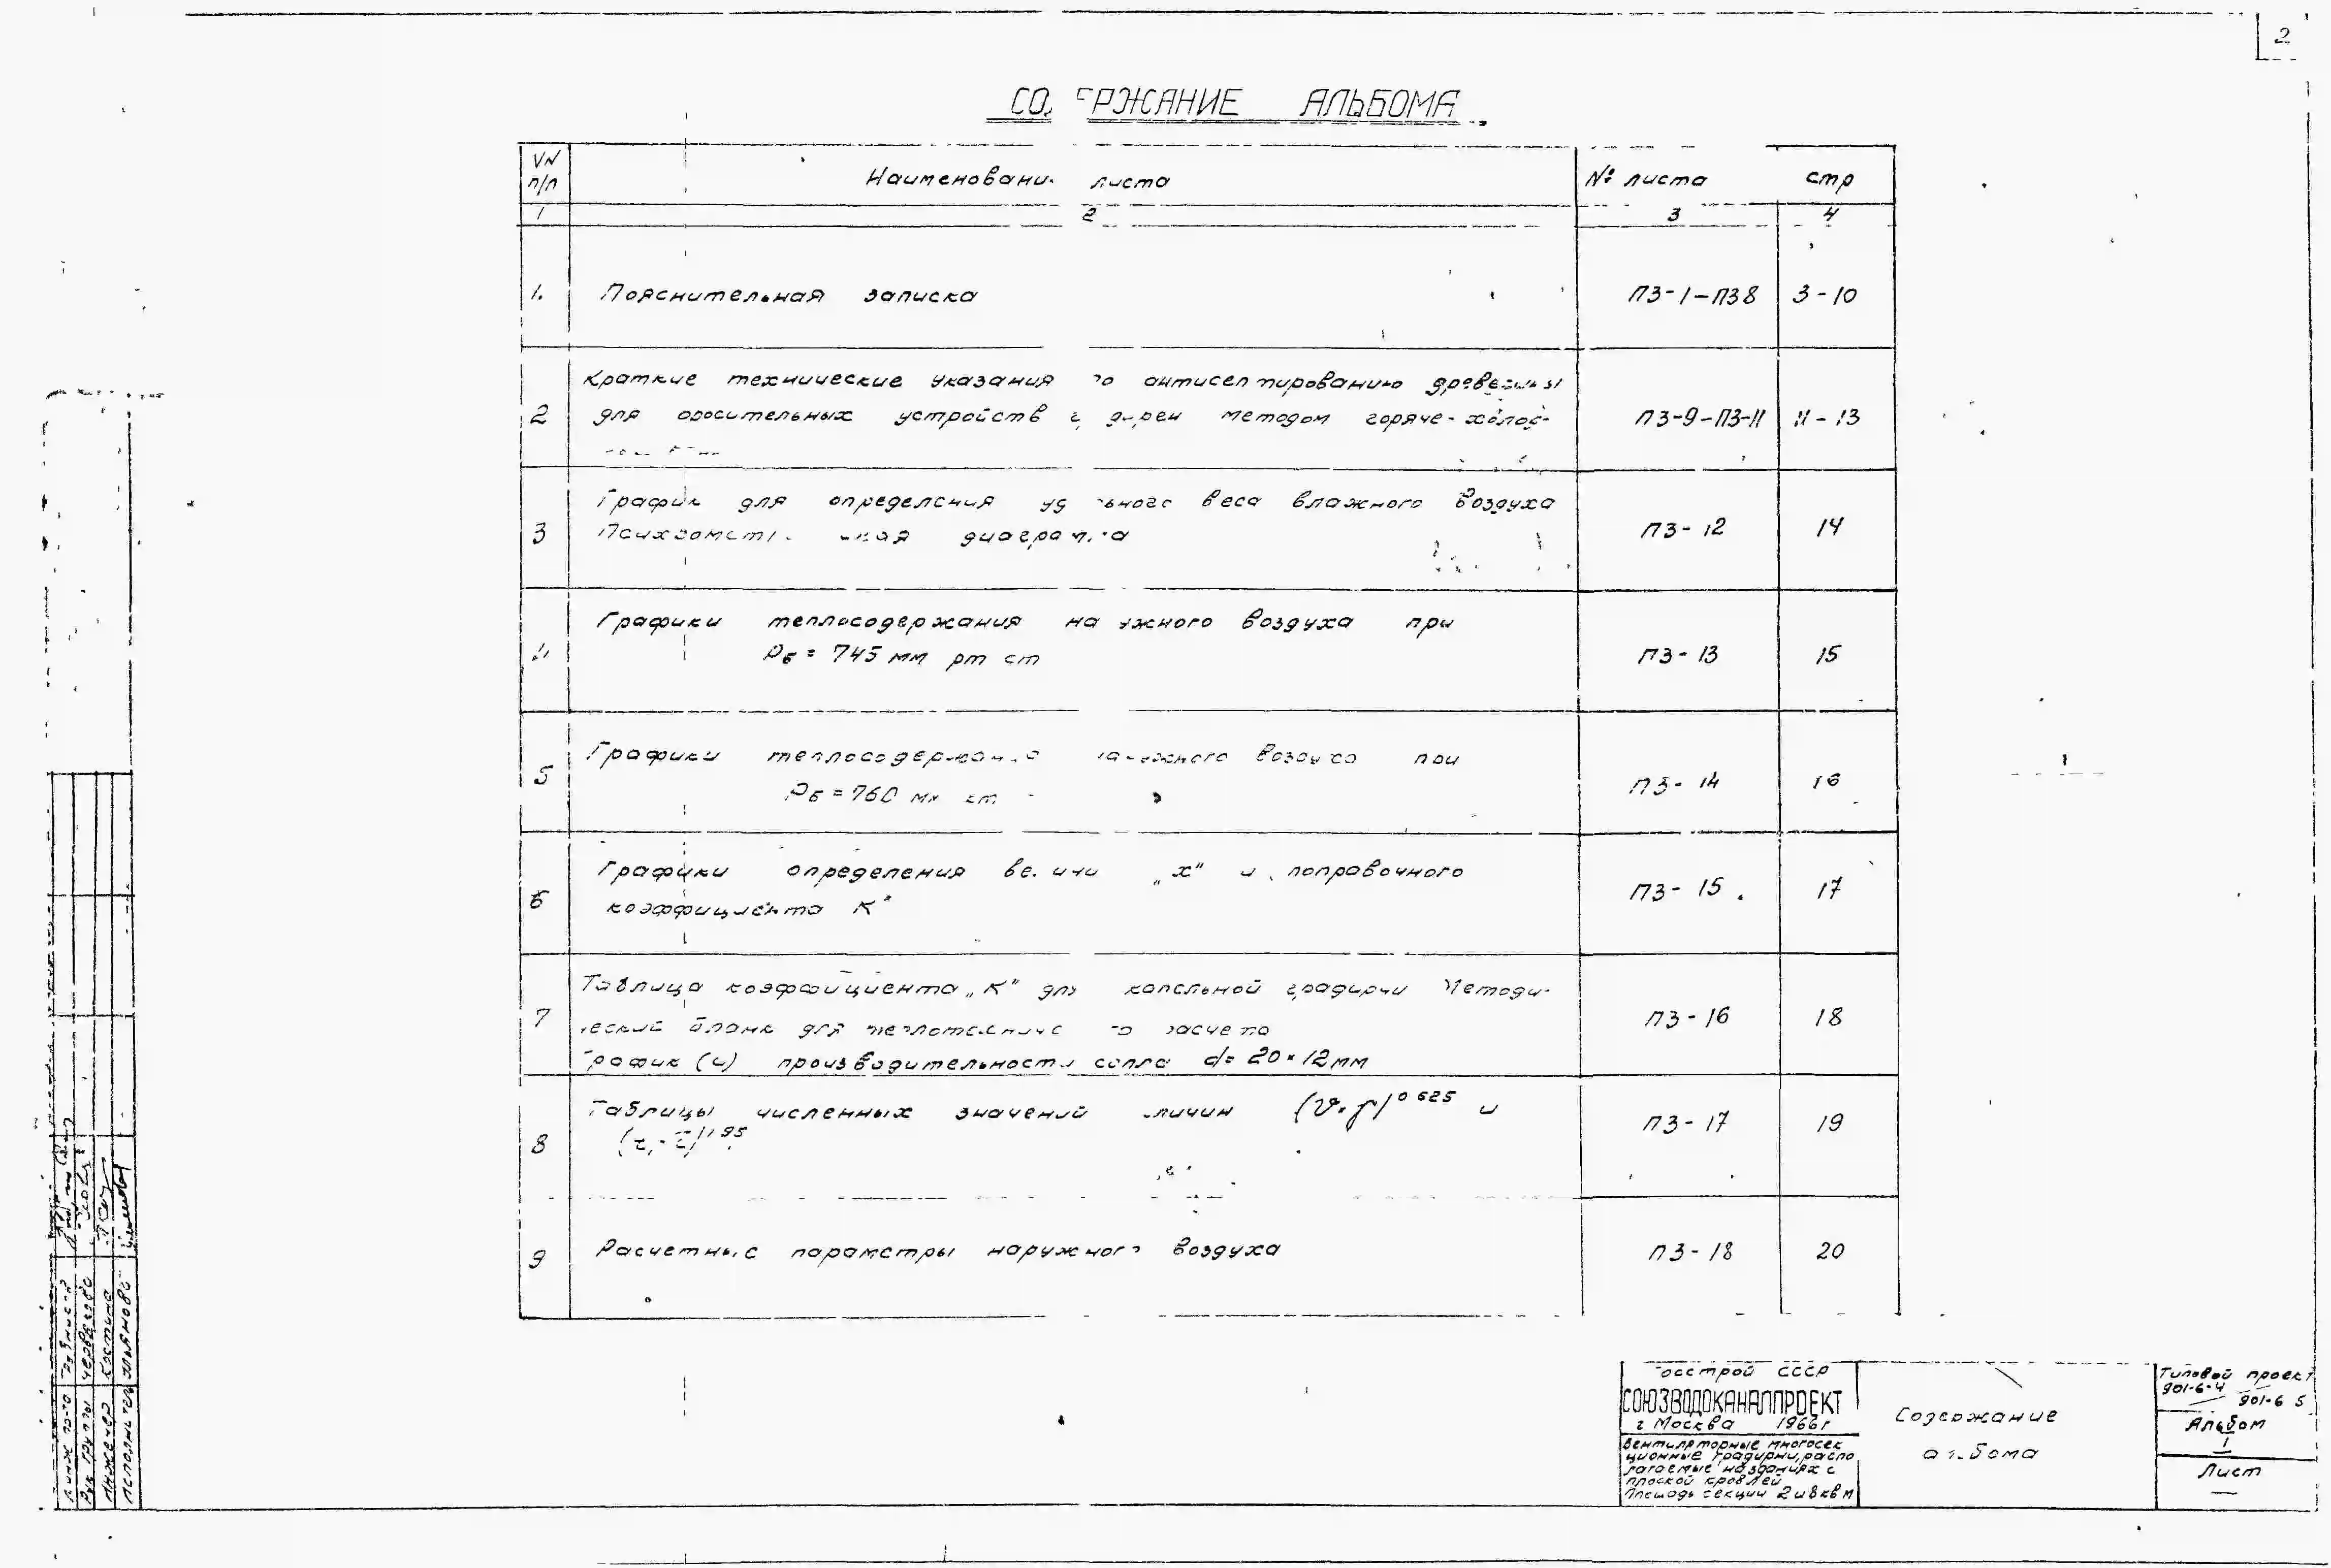 2
СОДЕРЖАНИЕ АЛЬБОМА
NN п/п
Наименование листа
№ листа
стр
1
2
3
4
1.
Пояснительная записка
ПЗ-1-ПЗ8
3-10
2
Краткие технические указания по антисептированию древесины
для оросительных устройств градирен методом горяче-холод-
ПЗ-9-ПЗ-11
11-13
3
График для определения удельного веса влажного воздуха
Психрометрическая диаграмма
ПЗ-12
14
4
Графики теплосодержания наружного воздуха при
Рб = 745 мм рт ст
ПЗ-13
15
5
Графики теплосодержания наружного воздуха при
Рб = 760 мм ст
ПЗ-14
16
6
Графики определения величин „х" и поправочного
коэффициента К"
ПЗ-15
17
7
Таблица коэффициента „К" для капельной градирни Методи-
ческий бланк для теплотехнического расчета
График (и) производительности сопла d= 20×12мм
ПЗ-16
18
8
Таблицы численных значений величин (υ·γ)^0 625 и
ПЗ-17
19
9
Расчетные параметры наружного воздуха
ПЗ-18
20
Госстрой СССР
СОЮЗВОДОКАНАЛПРОЕКТ
г Москва 1966г
Вентиляторные многосек
ционные градирни, распо
лагаемые на зданиях с
плоской кровлей
Площадь секции 2 и 8 кв м
Содержание
альбома
Типовой проект
901-6-4
901-6 5
Альбом
I
Лист
—
Рук группы
Инженер Костина
Исполнитель Ульянова